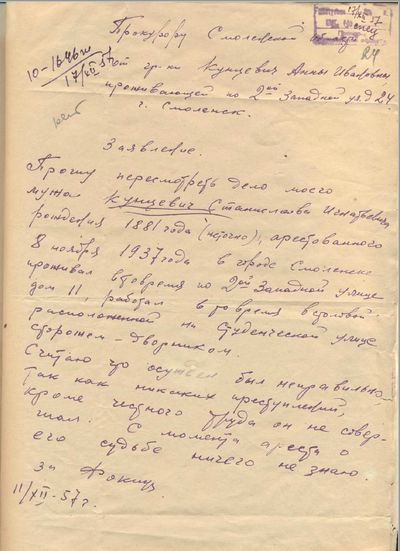 Прокурору Смоленской области
17/XII 57
24
10-1646ж
17/XII 57
от гр-ки Кунцевич Анны Ивановны
проживающей по 2ой Западной ул. д 24
г. Смоленск.
Заявление.
Прошу пересмотреть дело моего
мужа Кунцевич Станислава Игнатьевич
рождения 1881 года (неточно), арестованного
8 ноября 1937 года в городе Смоленске
проживал в то время по 2ой Западной улице
дом 11, работал в то время в
расположенной на Студенческой улице
сторожем – дворником.
Считаю что осужден был неправильно
так как никаких преступлений,
кроме честного труда он не совер-
шал. С момента ареста о
его судьбе ничего не знаю.
за
11/XII – 57 г.